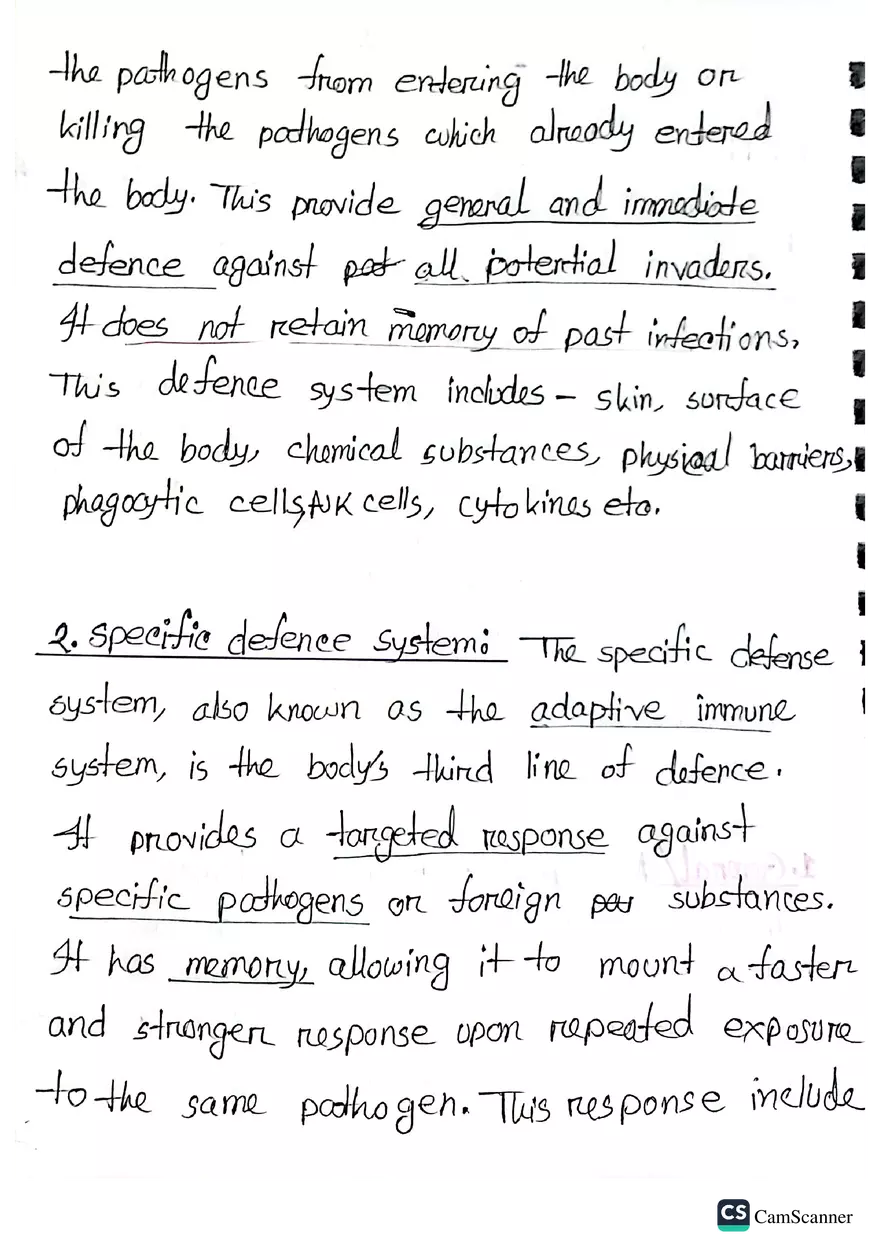 the pathogens from entering the body or
killing the pathogens which already entered
the body. This provide general and immediate
defence against all potential invaders.
It does not retain memory of past infections,
This defence system includes - skin, surface
of the body, chemical substances, physical barriers,
phagocytic cells, NK cells, cytokines etc.
2. Specific defence system: The specific defense
system, also known as the adaptive immune
system, is the body's third line of defence.
It provides a targeted response against
specific pathogens or foreign substances.
It has memory, allowing it to mount a faster
and stronger response upon repeated exposure
to the same pathogen. This response include
CS CamScanner